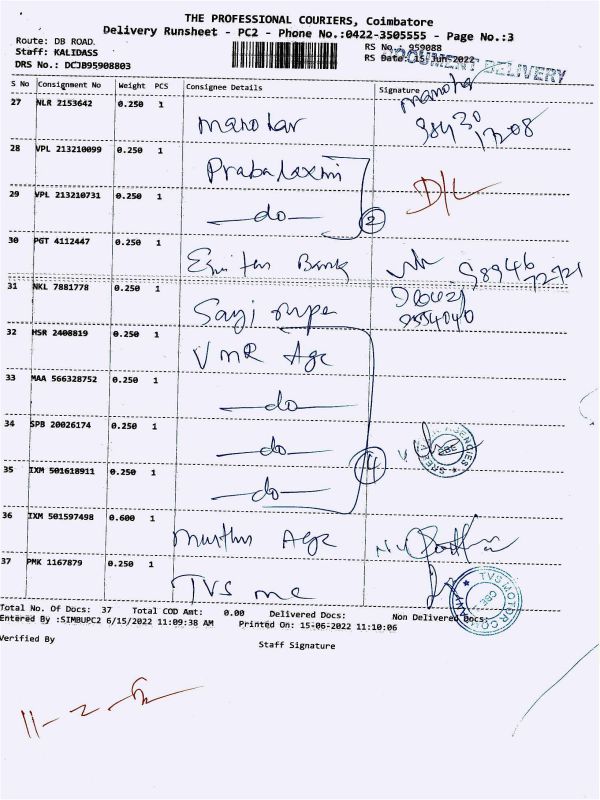 THE PROFESSIONAL COURIERS, Coimbatore
Delivery Runsheet - PC2 - Phone No.:0422-3505555 - Page No.:3
Route: DB ROAD.
RS No.: 959088
Staff: KALIDASS
RS Date: 15-Jun-2022
DOCUMENT DELIVERY
DRS No.: DCJB95908803
S No Consignment No Weight PCS Consignee Details Signature
27 NLR 2153642 0.250 1 manohar manohar
98430
17208
28 VPL 213210099 0.250 1 Prabalaxmi
29 VPL 213210731 0.250 1 —do— 2 D/L
30 PGT 4112447 0.250 1 Bank
31 NKL 7881778 0.250 1
32 HSR 2408819 0.250 1 VMR Age
33 MAA 566328752 0.250 1 —do—
34 SPB 20026174 0.250 1 —do—
35 IXM 501618911 0.250 1 —do— 4
36 IXM 501597498 0.600 1 Age
37 PMK 1167879 0.250 1 TVS mc
TVS MOTOR COMPANY
CBE
Total No. Of Docs: 37 Total COD Amt: 0.00 Delivered Docs: Non Delivered Docs:
Entered By :SIMBUPC2 6/15/2022 11:09:38 AM Printed On: 15-06-2022 11:10:06
Verified By
Staff Signature